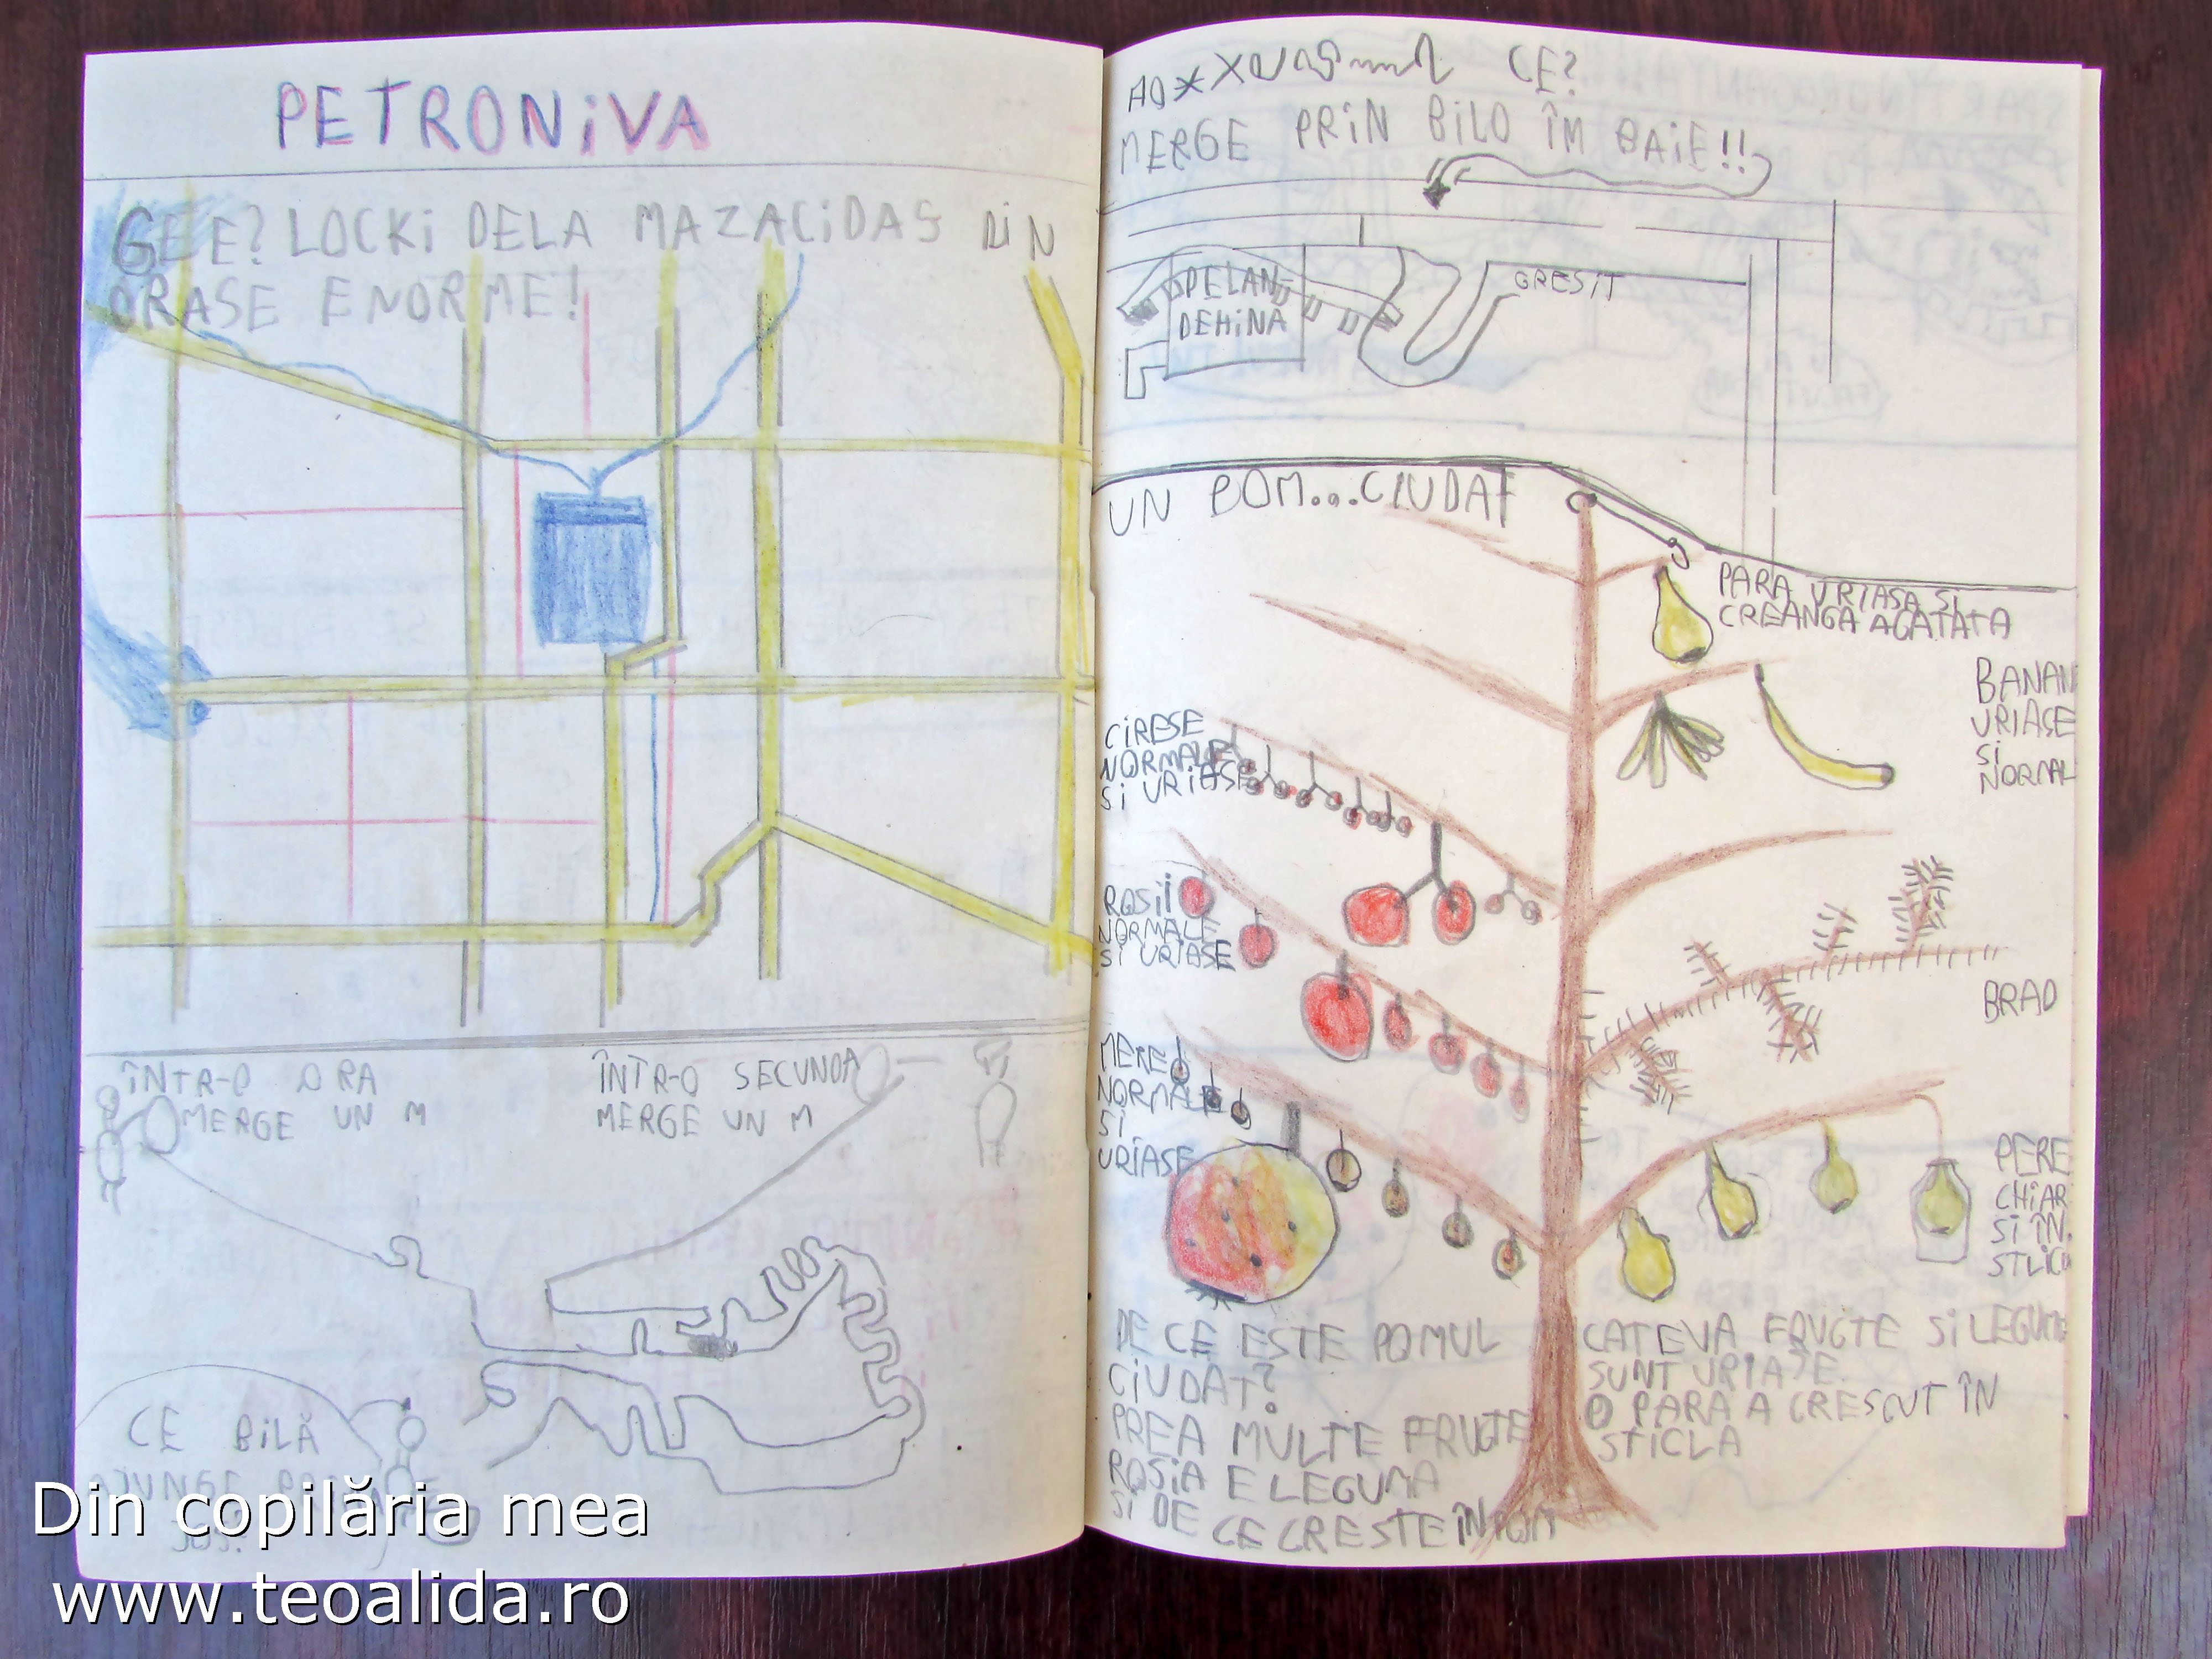 PETRONiVA
GE E? LOCKi DELA MAZACiDAS DiN
ORASE ENORME!
ÎNTR-O ORA
MERGE UN M
ÎNTR-O SECUNDA
MERGE UN M
CE BiLĂ
AJUNGE
JOS?
CE?
MERGE PRiN BiLO ÎM BAiE!!
PELAN
DEHiNA
GRESiT
UN POM...CIUDAT
PARA URIASA SI
CREANGA AGATATA
BANAN
URIASE
Si
NORMAL
CiRESE
NORMALE
Si URiASE
ROSii
NORMALE
Si URiASE
BRAD
MERE
NORMALE
Si
URiASE
PERE
CHiAR
Si ÎN
STLiCL
DE CE ESTE POMUL
CiUDAT?
PREA MULTE FRUCTE
ROSiA E LEGUMA
Si DE CE CRESTE ÎN POM
CATEVA FRUCTE Si LEGUME
SUNT URIASE.
O PARA A CRESCUT ÎN
STICLA
Din copilăria mea
www.teoalida.ro